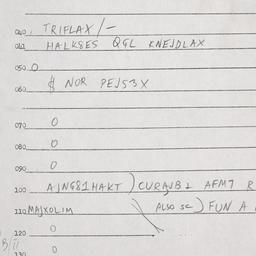 040 TRIFLAX/-
HALK8ES QGL KNEJDLAX
050 O
$ NOR PEJ53X
060
070 O
080 O
090 O
100 AJNG81HAKT) CURAJB1 AFM7 R
110 MAJXOLIM ALSO SC) FUN A
120 O
130 O